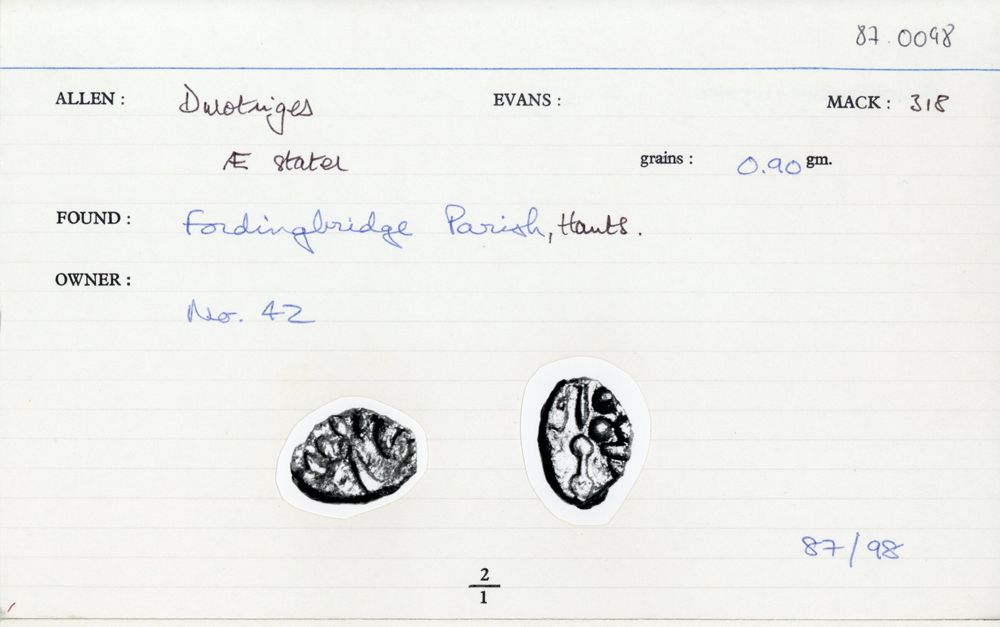 87.0098
ALLEN : Durotriges EVANS : MACK : 318
Æ stater grains : 0.90 gm.
FOUND : Fordingbridge Parish, Hants.
OWNER :
No. 42
87/98
2
1